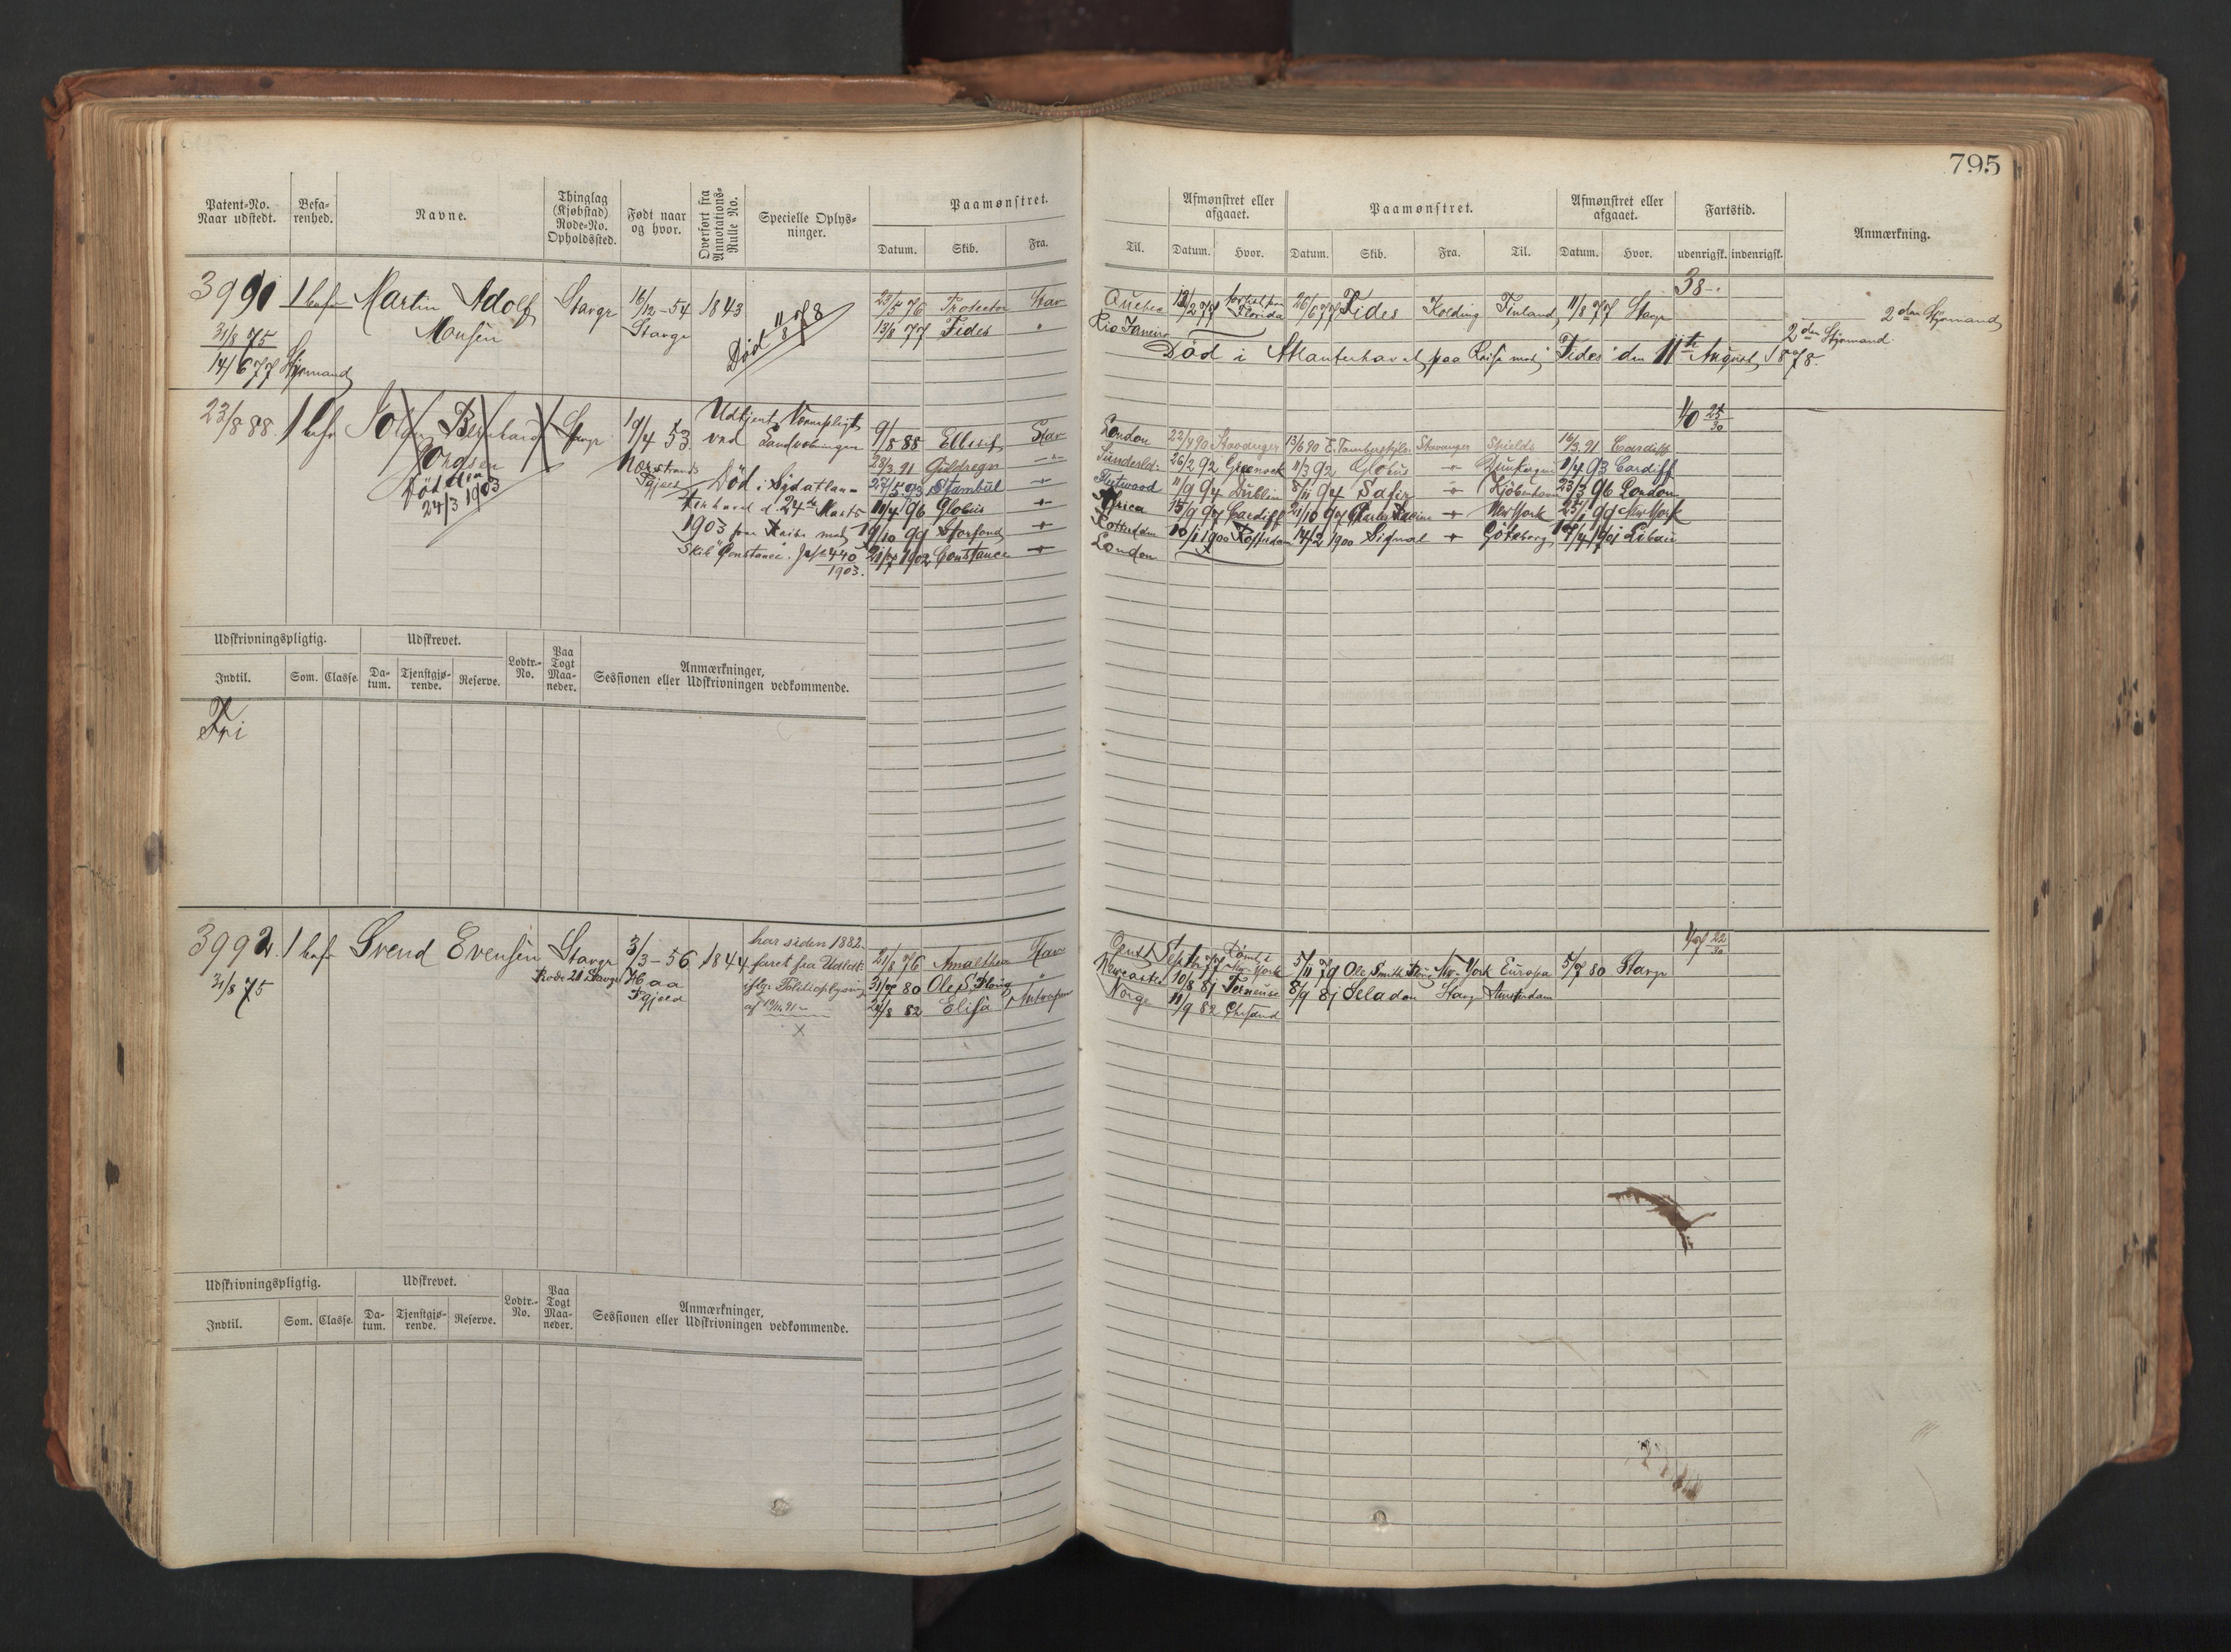 795
Patent-No. Naar udstedt.
Befa-renhed.
Navne.
Thinglag (Kjøbstad) Rode-No. Opholdssted.
Født naar og hvor.
Overført fra Annotations-Rulle No.
Specielle Oplys-ninger.
Paamønstret.
Datum. Skib. Fra.
Til.
Afmønstret eller afgaaet.
Datum. Hvor.
Paamønstret.
Datum. Skib. Fra. Til.
Afmønstret eller afgaaet.
Datum. Hvor.
Fartstid.
udenrigsk. indenrigsk.
Anmærkning.
38
3990 1 bef Martin Adolf Stavgr 16/12-54 1843 23/5 76 Protector Stav
Monsen Stavgr Død 11/8 78 13/6 77 Fides "
31/8 75
14/6 77 Styrmand
Quebec Florida 26/6 77 Fides Kolding Finland 11/8 77 Stavgr 2den Styrmand
Rio Janeiro 2den Styrmand
Død i Atlanterhavet paa Reise med Fides den 11te August 1878.
23/8 88 1 bef Bernhard Stavgr 19/4 53 Udtjent Vernepligt 9/8 88 Ellisif Stav
ved Landvæbningen
23/3 91 Guldregn
Død 24/3 1903
Død i Sydatlan-
27/5 93 Stambul
terhavet d. 24de Marts 11/4 96 Globus
1903 paa Reise med 99 Storfond
Skib "Constance". 440/1903. 1902 Constance
40 25/30
London 22/7 90 Stavanger 13/6 90 Stavanger Shields 16/3 91 Cardiff
Sunderld. 26/2 92 Greenock 11/3 92 Globus Dunkerque 11/4 93 Cardiff
Fleetwood 11/9 94 Dublin 8/11 94 Safir Kjöbenhavn 23/3 96 London
Africa 15/9 97 Cardiff 21/10 97 New York 25/1 99 New York
Rotterdam 10/1 1900 Rotterdam 14/2 1900 Signal Göteborg 1901 Libau
London
Udskrivningspligtig. Udskrevet. Lodtr.-No. Paa Togt Maa-neder. Anmærkninger, Sessionen eller Udskrivningen vedkommende.
Indtil. Som. Classe. Da-tum. Tjenstgjø-rende. Reserve.
Fri
3992. 1 bef Svend Evensen Stavgr 3/3-56 1844 har siden 1882 21/8 76 Amalthea Stav
31/8 75 Rode 21 Stavgr Haa faret fra Udldt. 31/7 80 Ole S. Ploug "
iflg. Politioplysning 24/8 82 Elisa Antwerpen
Gent Sept. 77 New-York 5/11 79 Ole Smith Ploug New-York Europa 5/7 80 Stavgr
Newcastle 10/8 81 Terneuse 8/9 81 Seladon Stavgr Amsterdam
Norge 11/9 82 Chrsand
22/30
Udskrivningspligtig. Udskrevet. Lodtr.-No. Paa Togt Maa-neder. Anmærkninger, Sessionen eller Udskrivningen vedkommende.
Indtil. Som. Classe. Da-tum. Tjenstgjø-rende. Reserve.